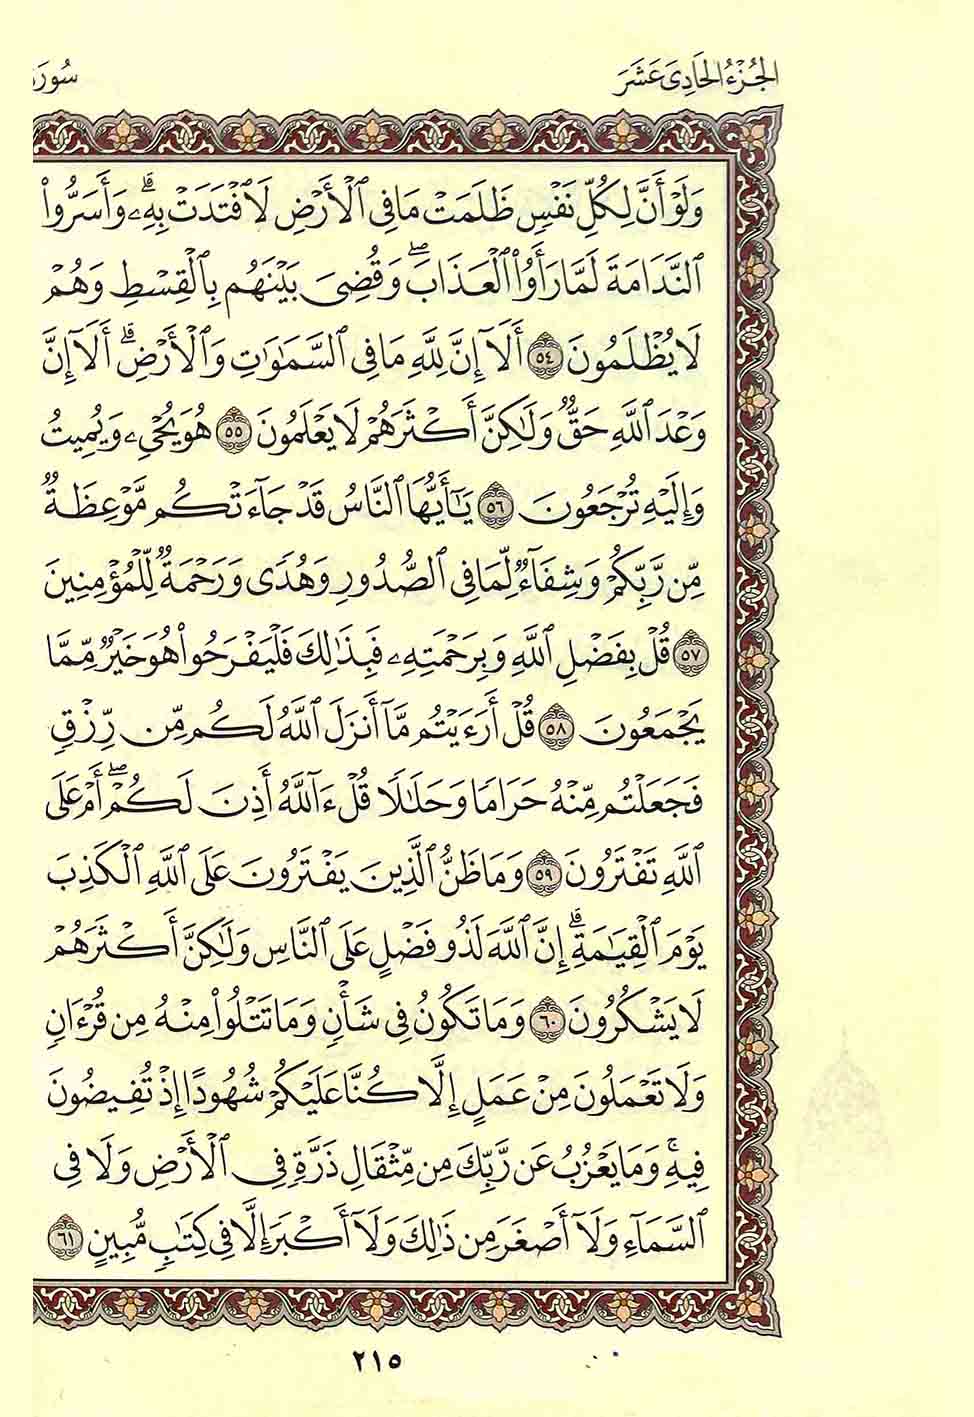 الجُزْءُ الحَادِىَ عَشَرَ
سُورَة
وَلَوْ أَنَّ لِكُلِّ نَفْسٍ ظَلَمَتْ مَا فِى ٱلْأَرْضِ لَٱفْتَدَتْ بِهِۦۗ وَأَسَرُّوا۟
ٱلنَّدَامَةَ لَمَّا رَأَوُا۟ ٱلْعَذَابَۖ وَقُضِىَ بَيْنَهُم بِٱلْقِسْطِ وَهُمْ
لَا يُظْلَمُونَ ٥٤ أَلَآ إِنَّ لِلَّهِ مَا فِى ٱلسَّمَٰوَٰتِ وَٱلْأَرْضِۗ أَلَآ إِنَّ
وَعْدَ ٱللَّهِ حَقٌّ وَلَٰكِنَّ أَكْثَرَهُمْ لَا يَعْلَمُونَ ٥٥ هُوَ يُحْىِۦ وَيُمِيتُ
وَإِلَيْهِ تُرْجَعُونَ ٥٦ يَٰٓأَيُّهَا ٱلنَّاسُ قَدْ جَآءَتْكُم مَّوْعِظَةٌ
مِّن رَّبِّكُمْ وَشِفَآءٌ لِّمَا فِى ٱلصُّدُورِ وَهُدًى وَرَحْمَةٌ لِّلْمُؤْمِنِينَ
٥٧ قُلْ بِفَضْلِ ٱللَّهِ وَبِرَحْمَتِهِۦ فَبِذَٰلِكَ فَلْيَفْرَحُوا۟ هُوَ خَيْرٌ مِّمَّا
يَجْمَعُونَ ٥٨ قُلْ أَرَءَيْتُم مَّآ أَنزَلَ ٱللَّهُ لَكُم مِّن رِّزْقٍ
فَجَعَلْتُم مِّنْهُ حَرَامًا وَحَلَٰلًا قُلْ ءَآللَّهُ أَذِنَ لَكُمْۖ أَمْ عَلَى
ٱللَّهِ تَفْتَرُونَ ٥٩ وَمَا ظَنُّ ٱلَّذِينَ يَفْتَرُونَ عَلَى ٱللَّهِ ٱلْكَذِبَ
يَوْمَ ٱلْقِيَٰمَةِۗ إِنَّ ٱللَّهَ لَذُو فَضْلٍ عَلَى ٱلنَّاسِ وَلَٰكِنَّ أَكْثَرَهُمْ
لَا يَشْكُرُونَ ٦٠ وَمَا تَكُونُ فِى شَأْنٍ وَمَا تَتْلُوا۟ مِنْهُ مِن قُرْءَانٍ
وَلَا تَعْمَلُونَ مِنْ عَمَلٍ إِلَّا كُنَّا عَلَيْكُمْ شُهُودًا إِذْ تُفِيضُونَ
فِيهِۚ وَمَا يَعْزُبُ عَن رَّبِّكَ مِن مِّثْقَالِ ذَرَّةٍ فِى ٱلْأَرْضِ وَلَا فِى
ٱلسَّمَآءِ وَلَآ أَصْغَرَ مِن ذَٰلِكَ وَلَآ أَكْبَرَ إِلَّا فِى كِتَٰبٍ مُّبِينٍ ٦١
٢١٥